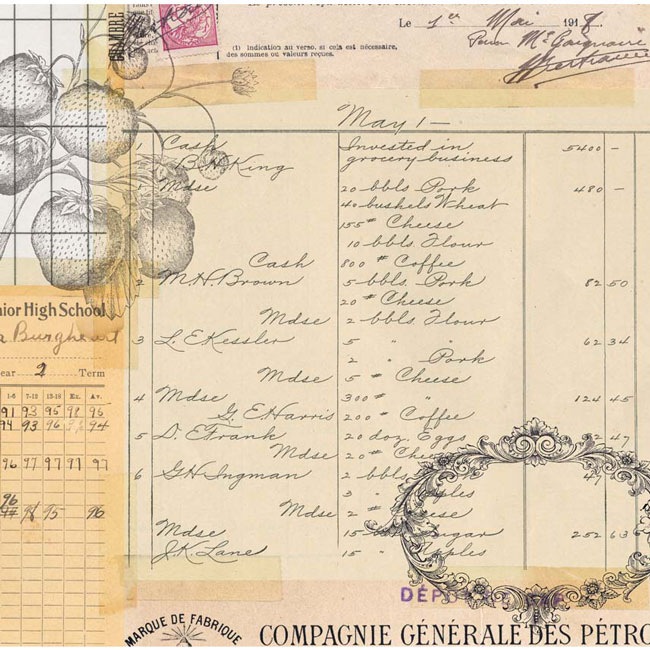 CHAMBRE
Le 1er Mai 191
(1) Indication au verso, si cela est nécessaire,
des sommes ou valeurs reçues.
May 1—
1 Cash Invested in 5400 –
B. H. King grocery business
1 Mdse 20 bbls. Pork 480 –
40 bushels Wheat
155 # Cheese
10 bbls. Flour
Cash 800 # Coffee
2 M. H. Brown 5 bbls. Pork 82 50
20 # Cheese
Mdse 2 bbls. Flour
3 L. E. Kessler 5 " " 62 34
2 " Pork
Mdse 5 # Cheese
4 Mdse 300 # " 124 45
G. E. Harris 200 # Coffee
5 D. E. Frank 20 doz. Eggs 47
Mdse 20 #
6 G H Ingman 2 bbls. 47
3 "
Mdse 2 #
Mdse 15 252 63
J. K. Lane 15 "
nior High School
Burghart
ear 2 Term
1-6 7-12 13-18 Ex. Av.
91 93 95 98 96
94 93 96 94
96 97 97 97 97
96
95 96
DÉP
MARQUE DE FABRIQUE
COMPAGNIE GÉNÉRALE DES PÉTRO